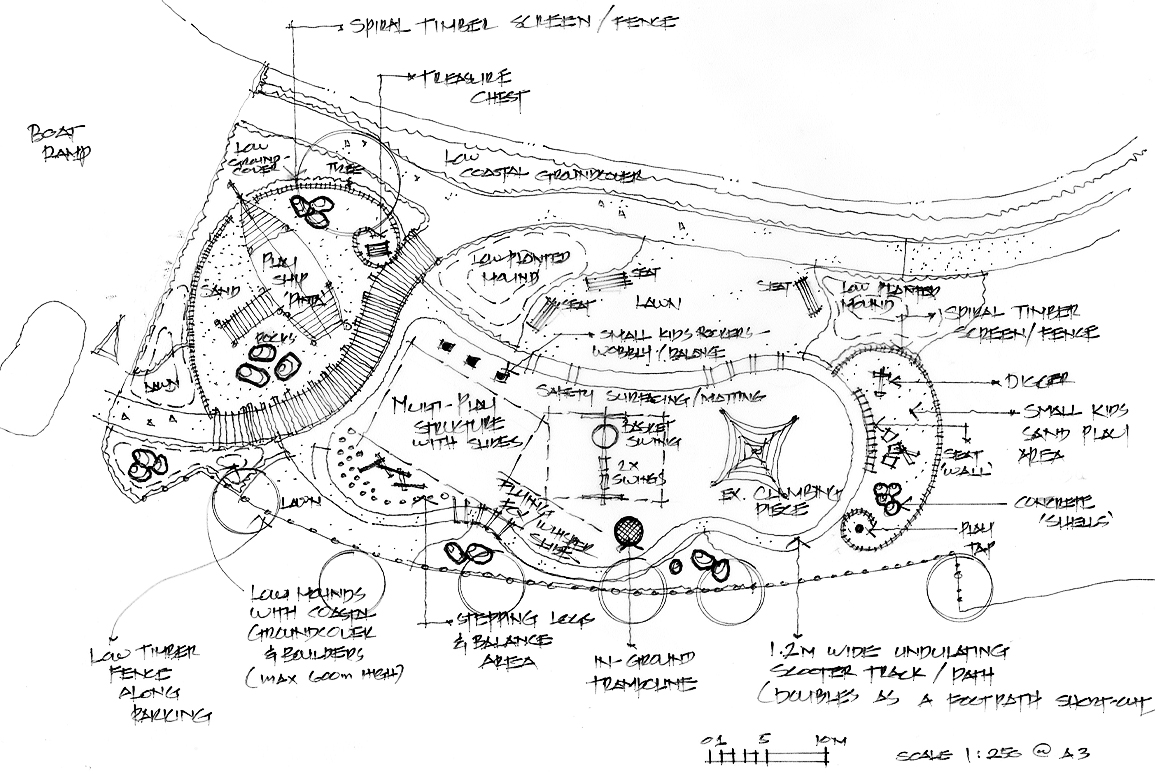 SPIRAL TIMBER SCREEN / FENCE
TREASURE
CHEST
BOAT
RAMP
LOW
GROUND-
COVER
TREE
LOW
COASTAL GROUNDCOVER
PLAY
SHIP
SAND
ROCKS
LAWN
LOW PLANTED
MOUND
SEAT
SEAT
LAWN
SEAT
LOW PLANTED
MOUND
SPIRAL TIMBER
SCREEN / FENCE
SMALL KIDS ROCKERS -
WOBBLY / BALANCE
SAFETY SURFACING / MATTING
DIGGER
SMALL KIDS
SAND PLAY
AREA
MULTI-PLAY
STRUCTURE
WITH SLIDES
BASKET
SWING
2X
SWINGS
SEAT
'WALL'
EX. CLIMBING
PIECE
CONCRETE
'SHELLS'
PLAY
TAP
LAWN
LOW MOUNDS
WITH COASTAL
GROUNDCOVER
& BOULDERS
(MAX 600M HIGH)
STEPPING LOGS
& BALANCE
AREA
IN-GROUND
TRAMPOLINE
1.2M WIDE UNDULATING
SCOOTER TRACK / PATH
(DOUBLES AS A FOOTPATH SHORT-CUT
LOW TIMBER
FENCE
ALONG
PARKING
0 1 5 10M
SCALE 1:250 @ A3